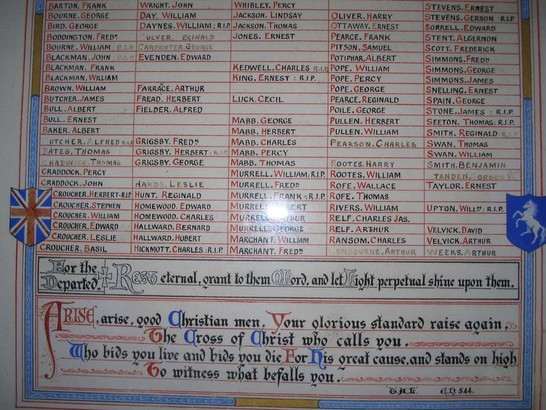 BARTON. FRANK WRIGHT. JOHN WHIBLEY. PERCY STEVENS. ERNEST
BOURNE. GEORGE DAY. WILLIAM JACKSON. LINDSAY OLIVER. HARRY STEVENS. GERSON : R.I.P
BIRD. GEORGE DAYNES. WILLIAM : R.I.P JACKSON. THOMAS OTTAWAY. ERNEST SORRELL. EDWARD
BODDINGTON. FREDK JONES. ERNEST PEARCE. FRANK STENT. ALGERNON
BOURNE. WILLIAM R.I.P CARPENTER. GEORGE PITSON. SAMUEL SCOTT. FREDERICK
BLACKMAN. JOHN R.I.P EVENDEN. EDWARD POTIPHAR. ALBERT SIMMONS. FREDK
BLACKMAN. FRANK KEDWELL. CHARLES R.I.P POPE. WILLIAM SIMMONS. GEORGE
BLACKMAN. WILLIAM KING. ERNEST : R.I.P. POPE. PERCY SIMMONS. JAMES
BROWN. WILLIAM FARRACE. ARTHUR POPE. GEORGE SNELLING. ERNEST
BUTCHER. JAMES FREAD. HERBERT LUCK. CECIL PEARCE. REGINALD SPAIN. GEORGE
BULL. ALBERT FIELDER. ALFRED POILE. GEORGE STONE. JAMES : R.I.P.
BULL. ERNEST MABB. GEORGE PULLEN. HERBERT SEETON. THOMAS : R.I.P.
BAKER. ALBERT MABB. HERBERT PULLEN. WILLIAM SMITH. REGINALD R.I.P
GRIGSBY. FREDK MABB. CHARLES PEARSON. CHARLES SWAN. THOMAS
BATES. THOMAS GRIGSBY. HERBERT : R.I.P MABB. PERCY SWAN. WILLIAM
CHADWICK. THOMAS GRIGSBY. GEORGE MABB. THOMAS ROOTES. HARRY SMITH. BENJAMIN
CRADDOCK. PERCY MURRELL. WILLIAM : R.I.P ROOTES. WILLIAM
CRADDOCK. JOHN LESLIE MURRELL. FREDK ROFE. WALLACE TAYLOR. ERNEST
CROUCHER. HERBERT-R.I.P HOYT. REGINALD MURRELL. FRANK : R.I.P ROFE. THOMAS
CROUCHER. STEPHEN HOMEWOOD. EDWARD MURRELL. RIVERS. WILLIAM UPTON. WILLM : R.I.P.
CROUCHER. WILLIAM HOMEWOOD. CHARLES MURRELL. RELF. CHARLES JAS.
CROUCHER. EDWARD HALLWARD. BERNARD MURRELL. GEORGE RELF. ARTHUR VELVICK. DAVID
CROUCHER. LESLIE HALLWARD. HUBERT MARCHANT. WILLIAM RANSOM. CHARLES VELVICK. ARTHUR
CROUCHER. BASIL HICKMOTT. CHARLES : R.I.P MARCHANT. FREDK ARTHUR WEEKS. ARTHUR
For the Departed. Rest eternal, grant to them O Lord, and let Light perpetual shine upon them.
ARISE, arise, good Christian men, Your glorious standard raise again,
The Cross of Christ who calls you.
Who bids you live and bids you die For His great cause, and stands on high
To witness what befalls you.